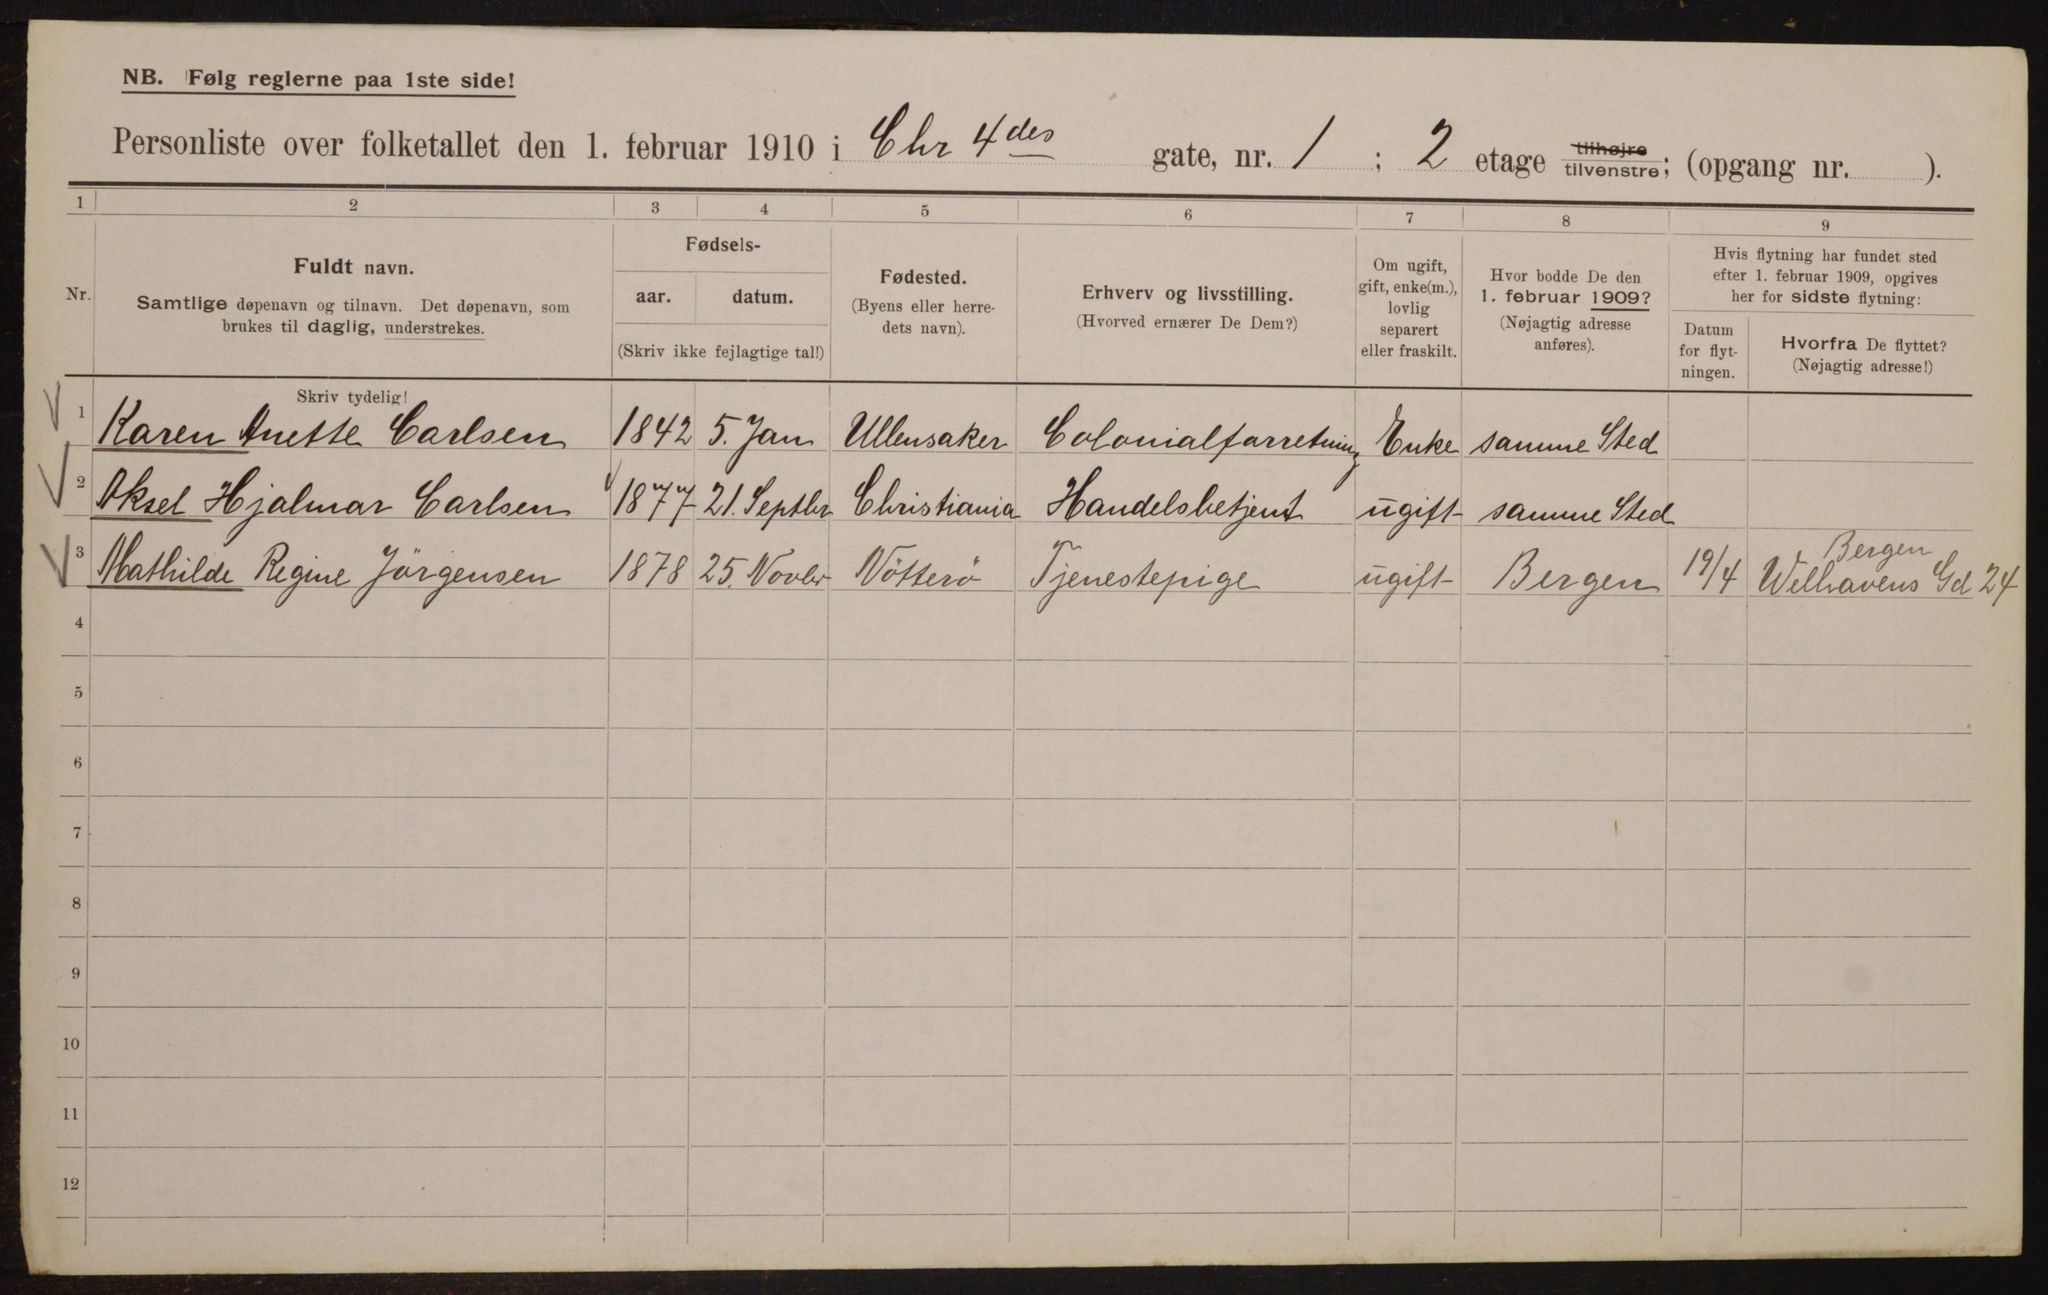 NB. Følg reglerne paa 1ste side!
Personliste over folketallet den 1. februar 1910 i Chr 4des gate, nr. 1 ; 2 etage tilhøjre tilvenstre; (opgang nr. ).
1 2 3 4 5 6 7 8 9
Nr.
Fuldt navn.
Samtlige døpenavn og tilnavn. Det døpenavn, som
brukes til daglig, understrekes.
Skriv tydelig!
Fødsels-
aar. datum.
(Skriv ikke fejlagtige tal!)
Fødested.
(Byens eller herre-
dets navn).
Erhverv og livsstilling.
(Hvorved ernærer De Dem?)
Om ugift,
gift, enke(m.),
lovlig
separert
eller fraskilt.
Hvor bodde De den
1. februar 1909?
(Nøjagtig adresse
anføres).
Hvis flytning har fundet sted
efter 1. februar 1909, opgives
her for sidste flytning:
Datum
for flyt-
ningen.
Hvorfra De flyttet?
(Nøjagtig adresse!)
1 Karen Anette Carlsen 1842 5. Jan Ullensaker Colonialforretning Enke samme Sted
2 Aksel Hjalmar Carlsen 1877 21. Septbr Christiania Handelsbetjent ugift samme Sted
3 Mathilde Regine Jörgensen 1878 25. Novbr Nötterö Tjenestepige ugift Bergen 19/4 Bergen
Welhavens Gd 24
4
5
6
7
8
9
10
11
12